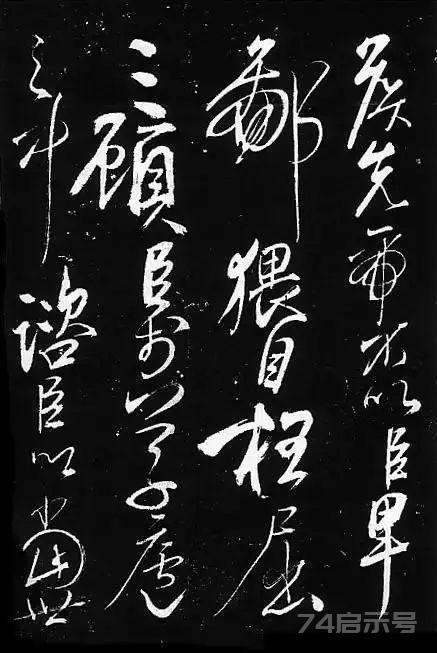 侯先帝不以臣卑
鄙猥自枉屈
三顧臣於草廬
之中諮臣以當世
74启示号